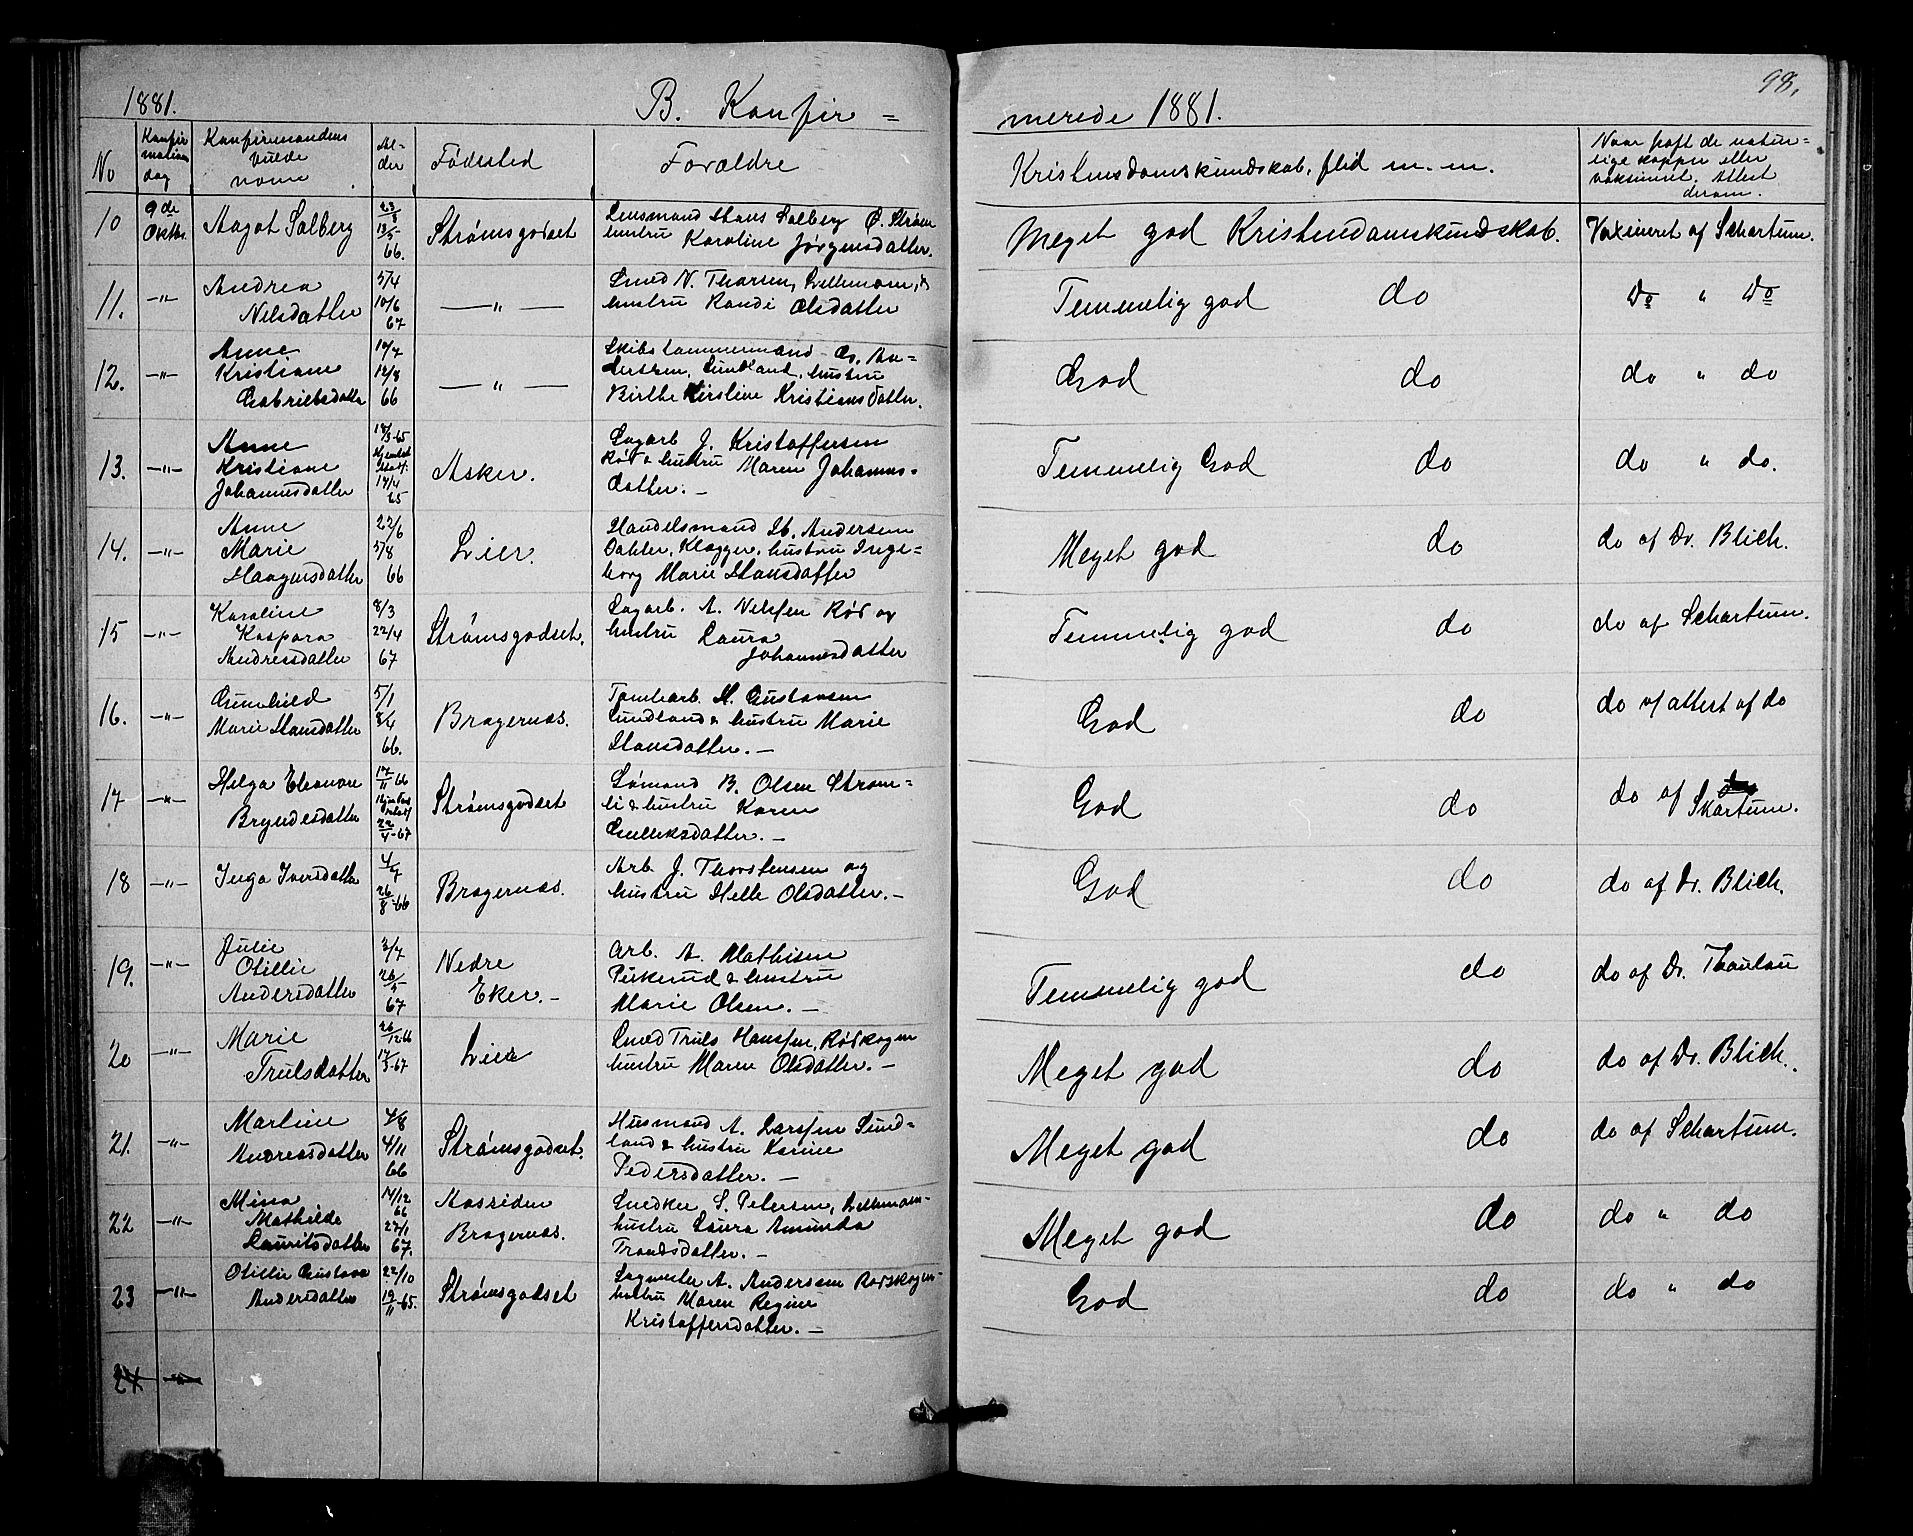 98.
1881. B. Konfir = merede 1881.
No
Konfir
mations
dag
Konfirmandens
fulde
navn.
Al-
der
Fødested
Forældre
Kristendomskundskab, flid m. m.
Naar haft de natur=
lige kopper eller
vaksineret. Attest
derom.
10 9de Oktbr. Aagot Solberg 23/3 13/5 66. Strømsgodset
Lensmand Hans Solberg Ø. Strøm
hustru Karoline Jørgensdatter.
Meget god Kristendomskundskab. Vaxineret af Schartum.
11. -"- Andrea
Nilsdatter 5/4 10/6 67 — " —
Smed N. Thorsen,
hustru Randi Olsdatter
Temmelig god do Do " Do
12. -"- Anne
Kristiane
Gabrielsdatter 14/7 12/8 66 — " —
Skibstømmermand G. An=
dersen, Sundland, hustru
Birthe Kirstine Kristiansdatter.
God do do " do
13. -"- Anne
Kristiane
Johannesdatter 18/3-65 17/4 65 Asker.
Sagarb J. Kristoffersen
Rød & hustru Maren Johannes-
datter. —
Temmelig God do do " do.
14. -"- Anne
Marie
Haagensdatter 22/6 5/8 66 Lier.
Handelsmand H. Andersen
Dahler, Klopper, hustru Inge=
borg Marie Hansdatter
Meget god do do af Dr. Blich.
15 -"- Karoline
Kaspara
Andreasdatter 8/3 22/4 67 Strømsgodset.
Sagarb. A. Nilssen Rød og
hustru Laura
Johannesdatter
Temmelig god do do af Schartum.
16. -"- Gunhild
Marie Hansdatter 5/1 8/4 66. Bragernæs.
Tomtearb. H. Gustavsen
Sundland & hustru Marie
Hansdatter. —
God do do v/ attest af do
17 -"- Helga Elenore
Bryndesdatter 17/11-66 22/4-67 Strømsgodset
Sømand B. Olsen Strøm=
li & hustru Karen
Gulliksdatter. —
God do do af Skartum.
18 -"- Inga Iversdatter 4/7 26/8-66 Bragernæs.
Arb. J. Thorstensen og
hustru Helle Olsdatter. —
God do do af Dr. Blich.
19. -"- Julie
Otillie
Andersdatter 3/4 26/5 67 Nedre
Eker. —
Arb. A. Mathisen
Pukerud & hustru
Marie Olsen. —
Temmelig god do do af Dr. Thaulau
20 -"- Marie
Trulsdatter 26/12-66 17/3-67 Lier
Smed Truls Hanssen, Rødskogen
hustru Maren Olsdatter. —
Meget god do do af Dr. Blich.
21. -"- Martine
Andreasdatter 4/8 4/11 66 Strømsgodset.
Husmand A. Larssen Sund-
land & hustru Karine
Pedersdatter. —
Meget god do do af Schartum.
22 -"- Mina
Mathilde
Lauritsdatter 14/12 66 27/1 67. Aassiden
Bragernæs.
Snedker L. Petersen,
hustru Laura Amunda
Trondsdatter. —
Meget god do do " do
23 -"- Otillie Gustava
Andersdatter 22/10 19/11-65. Strømsgodset
Sagmester A. Andersen Rødskogen-
hustru Maren Regine
Kristoffersdatter. —
God do do " do
24 -"-